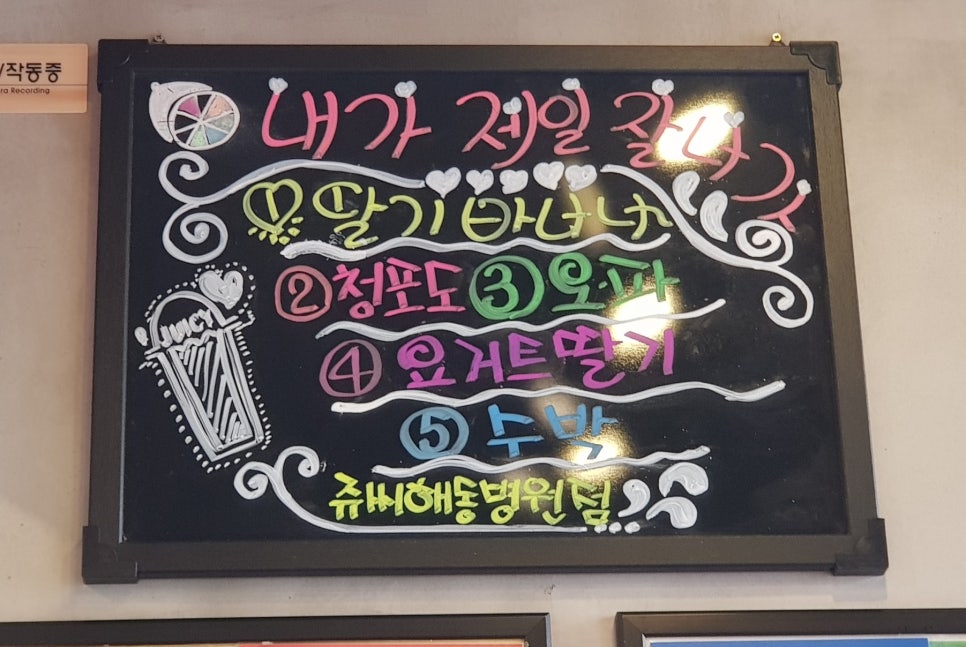 /작동중
ra Recording
내가 제일 잘나가
① 딸기바나나
② 청포도 ③ 오·파
④ 요거트딸기
⑤ 수박
JUICY
쥬씨해동병원점